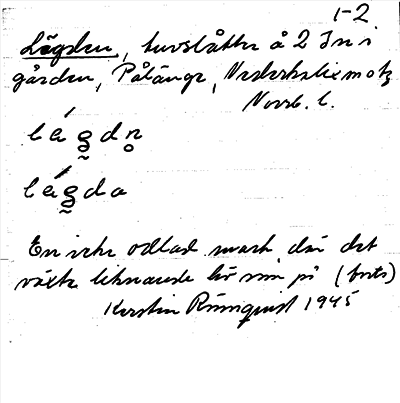 1-2
Lägden, hårdslåtter å 2 Jn i
gården, Pålänge, Nederkalix m otz
Norrb. l.
lǽgdn
lǽgda
En icke odlad mark där det
växte liknande hö som på (forts)
Kerstin Rönnqvist 1945